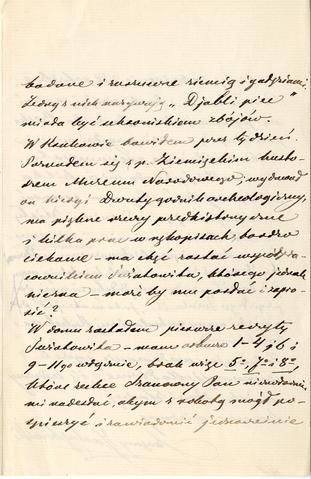 badane i zasuwane ziemią i gadziami.
Jedną z nich nazywają „Djabli piec"
miała być schroniskiem zbójów.
W Krakowie bawiłem przez tydzień.
Poznałem się z p. Ziemięckim kusto-
szem Muzeum Narodowego; wydawał
on kiedyś Dwutygodnik archeologiczny,
ma piękne rzeczy przedhistoryczne
i kilka prac w rękopisach, bardzo
ciekawe – ma chęć zostać współpra-
cownikiem Światowita, którego jednak
nie zna – może by mu posłać i zapro-
sić?
W domu zastałem pierwsze zeszyty
Światowita – mam arkusze 1–4, i 6 i
9–11go włącznie, brak więc 5º, 7º i 8º,
które zechce Szanowny Pan
mi nadesłać, abym z robotą mógł po-
spieszyć i zawiadomić jednocześnie